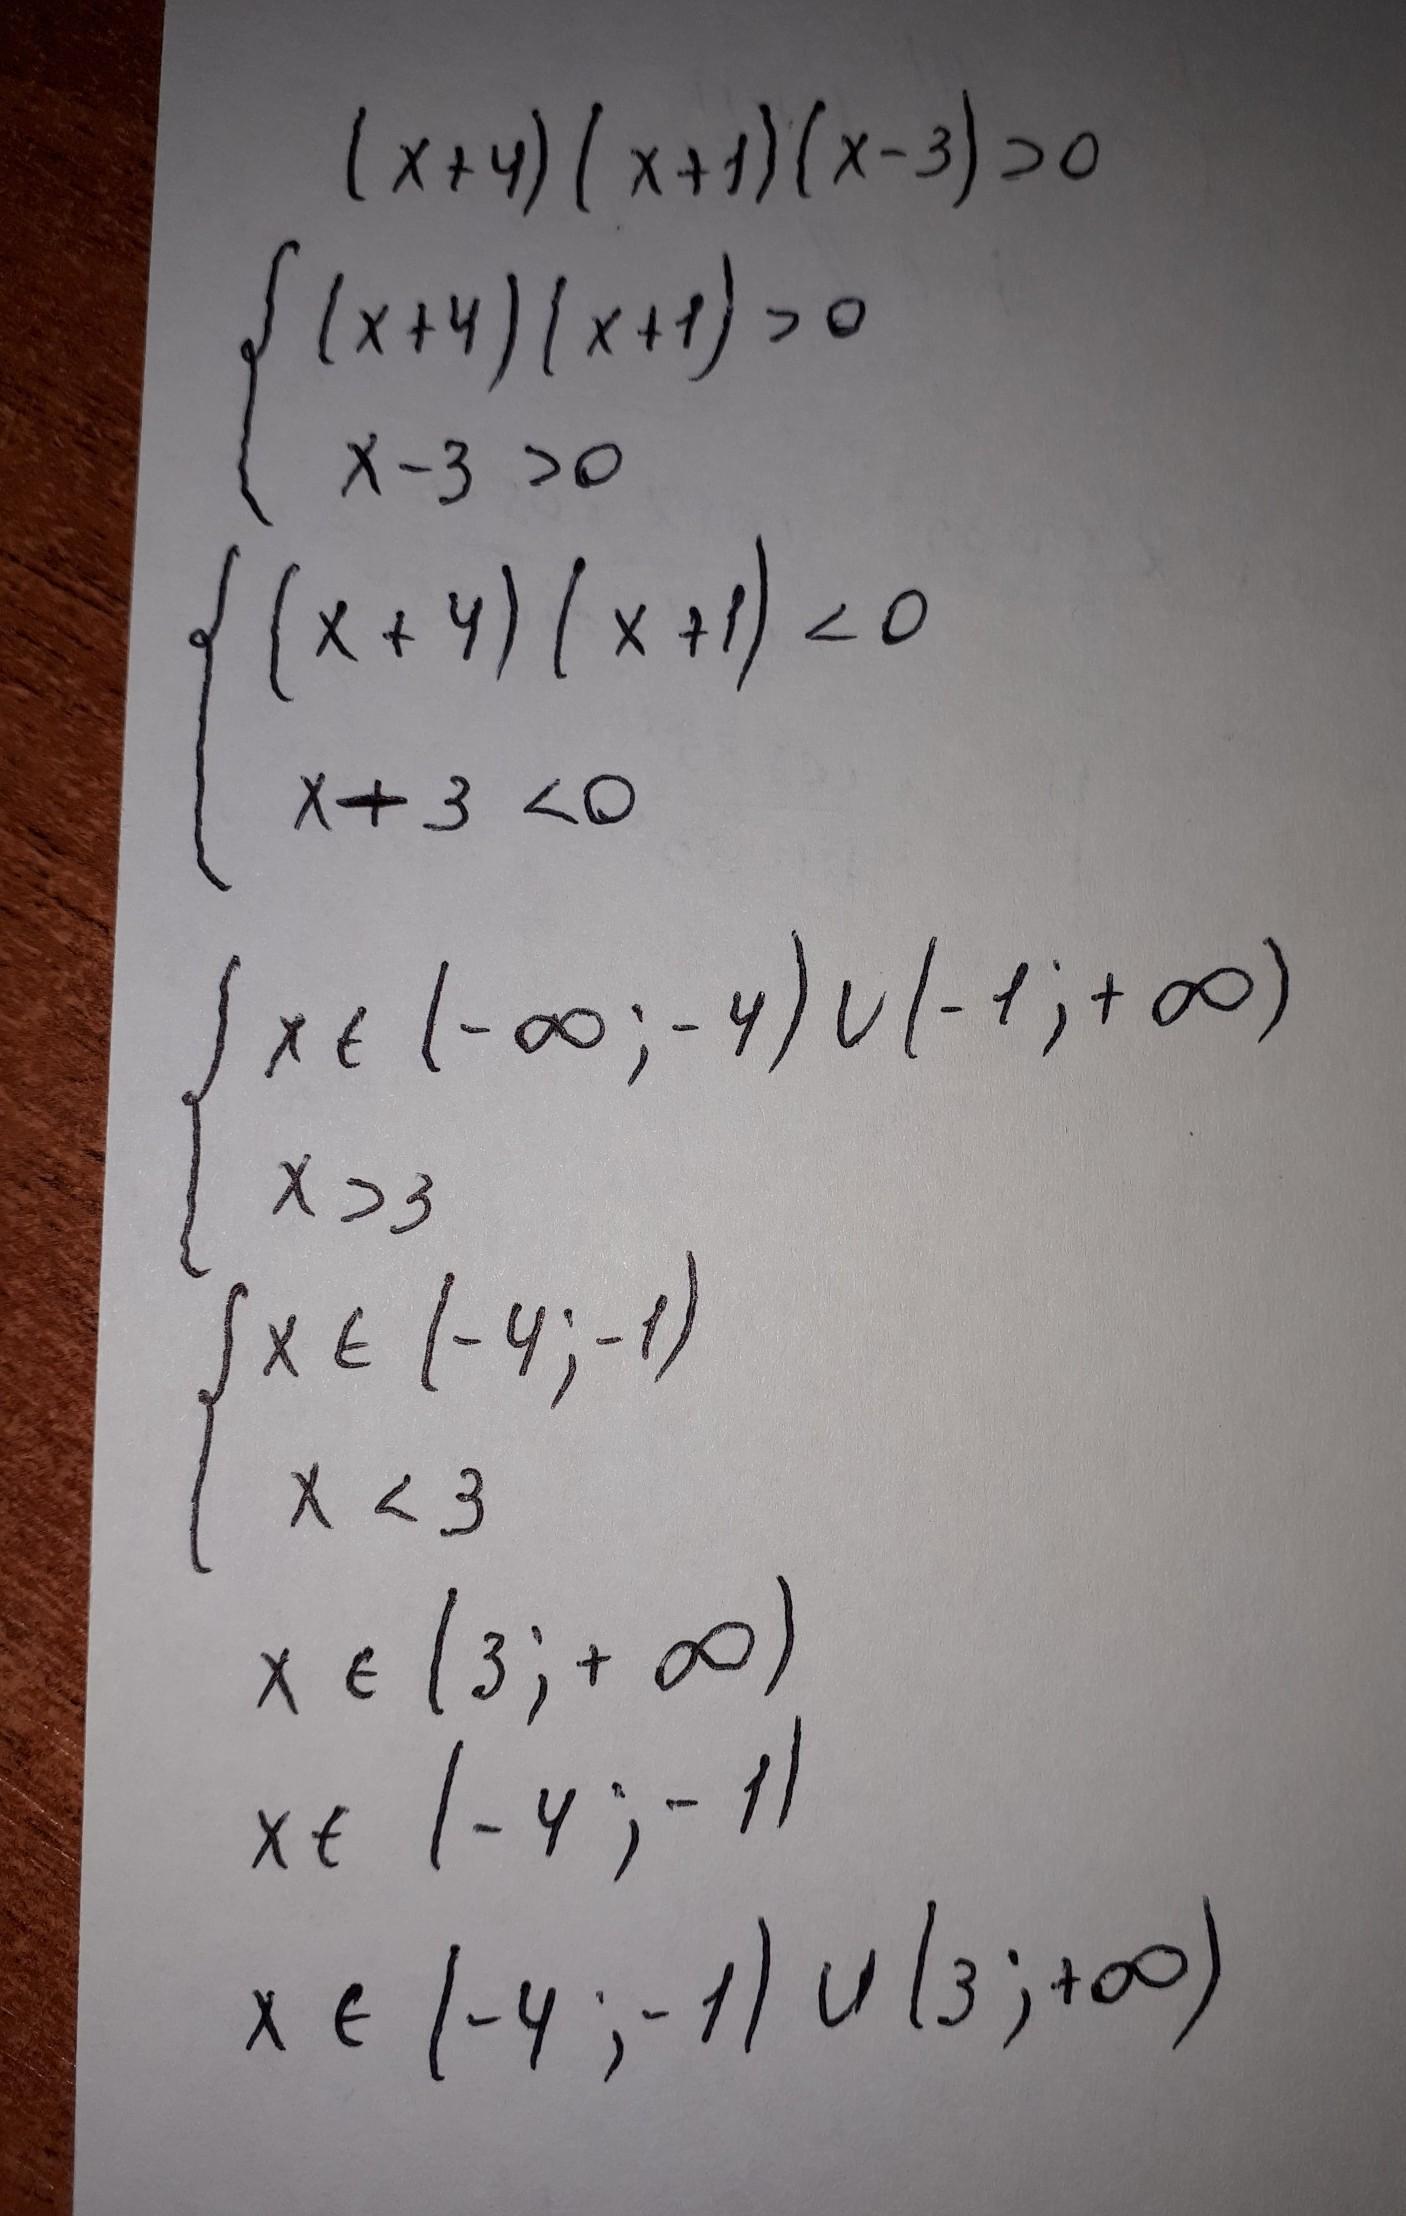 (x+4)(x+1)(x-3)>0
(x+4)(x+1)>0
x-3>0
(x+4)(x+1)<0
x+3<0
x∈(-∞;-4)∪(-1;+∞)
x>3
x∈(-4;-1)
x<3
x∈(3;+∞)
x∈(-4;-1)
x∈(-4;-1)∪(3;+∞)